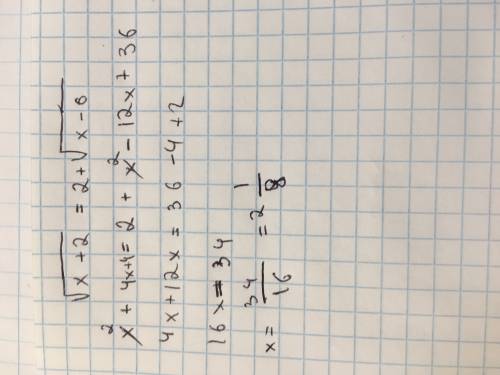 √x+2 = 2+√x-6
x² + 4x+4 = 2 + x² - 12x + 36
4x+12x = 36 -4 +2
16x = 34
x = 34/16 = 2 1/8